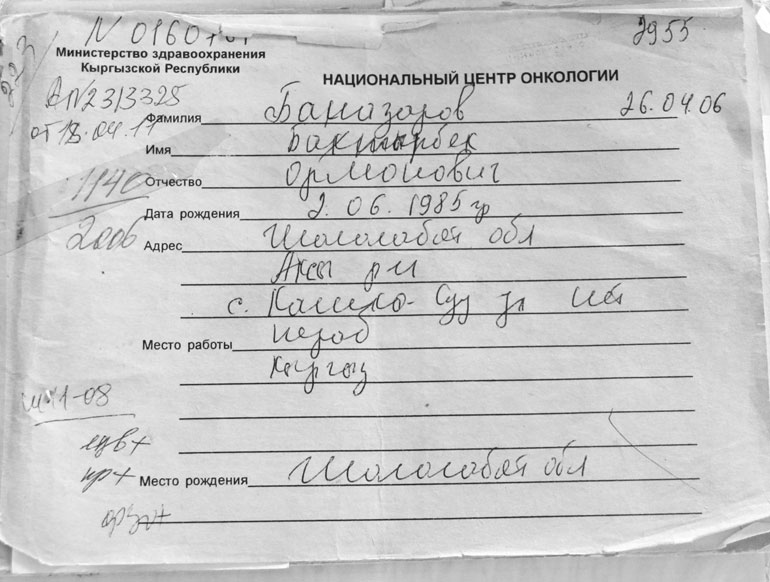 N 0160
2955
Министерство здравоохранения
Кыргызской Республики
НАЦИОНАЛЬНЫЙ ЦЕНТР ОНКОЛОГИИ
N2313325
от 18.04.11
Фамилия Баназаров 26.04.06
Имя Бактырбек
1140
Отчество Ормонович
Дата рождения 2.06.1985 гр
2006
Адрес обл
Аксы рн
с. Кашка-Суу ул
Место работы н/раб
Кыргыз
1-08
Место рождения обл